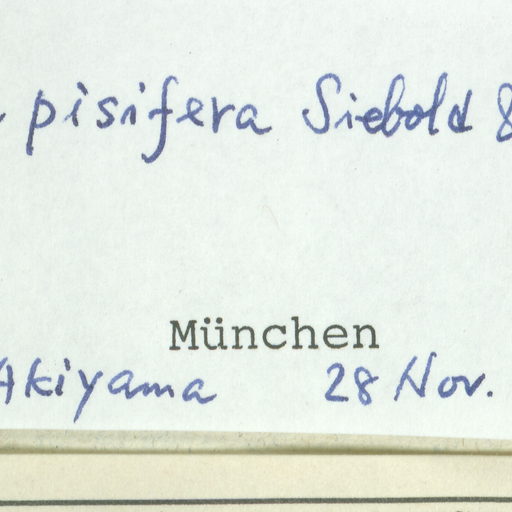 pisifera Siebold &
München
Akiyama 28 Nov.